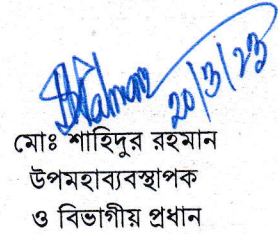 20/3/23
মোঃ শাহিদুর রহমান
উপমহাব্যবস্থাপক
ও বিভাগীয় প্রধান